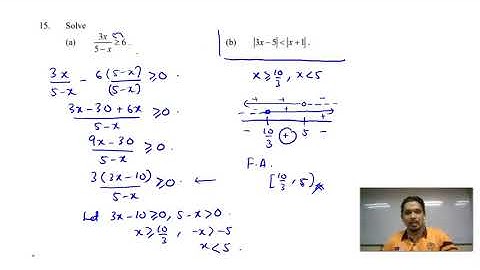 15. Solve
(a) 3x/(5-x) ≥ 6.
3x/(5-x) - 6(5-x)/(5-x) ≥ 0.
(3x-30+6x)/(5-x) ≥ 0.
(9x-30)/(5-x) ≥ 0.
3(3x-10)/(5-x) ≥ 0. ←
Let 3x-10 ≥ 0, 5-x > 0.
x ≥ 10/3, -x > -5
x < 5.
(b) |3x-5| < |x+1|.
x ≥ 10/3, x < 5
- + + + - -
- - 10/3 + 5 -
F.A.
[10/3, 5)